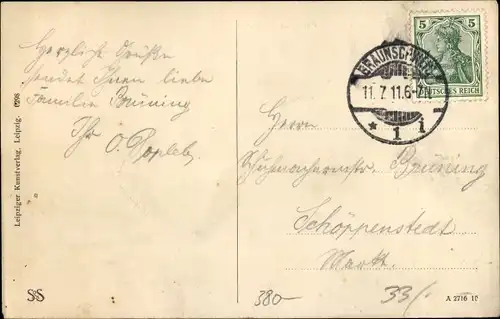 Herzliche Grüße
sendet Ihnen liebe
Familie Brüning
Ihr
O.
Leipziger Kunstverlag, Leipzig.
S&S
5 5
DEUTSCHES REICH
BRAUNSCHWEIG
11.7.11.6-7
* 1 i
Herrn
Schuhmachermstr. Brüning
Schöppenstedt
Markt.
380-
33/-
A 2716 10